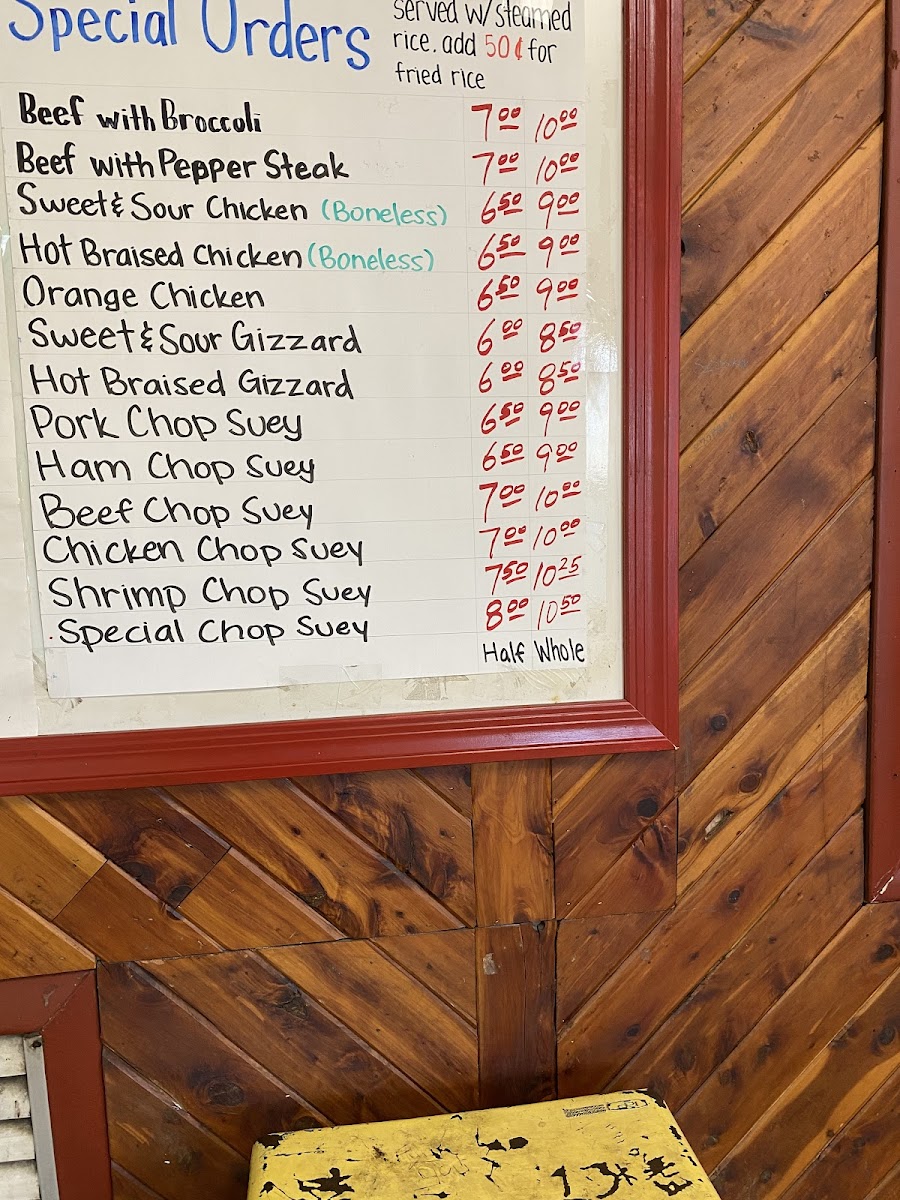 Special Orders
served w/ steamed
rice. add 50¢ for
fried rice
Beef with Broccoli 7.00 10.00
Beef with Pepper Steak 7.00 10.00
Sweet & Sour Chicken (Boneless) 6.50 9.00
Hot Braised Chicken (Boneless) 6.50 9.00
Orange Chicken 6.50 9.00
Sweet & Sour Gizzard 6.00 8.50
Hot Braised Gizzard 6.00 8.50
Pork Chop Suey 6.50 9.00
Ham Chop Suey 6.50 9.00
Beef Chop Suey 7.00 10.00
Chicken Chop Suey 7.00 10.00
Shrimp Chop Suey 7.50 10.25
Special Chop Suey 8.00 10.50
Half Whole